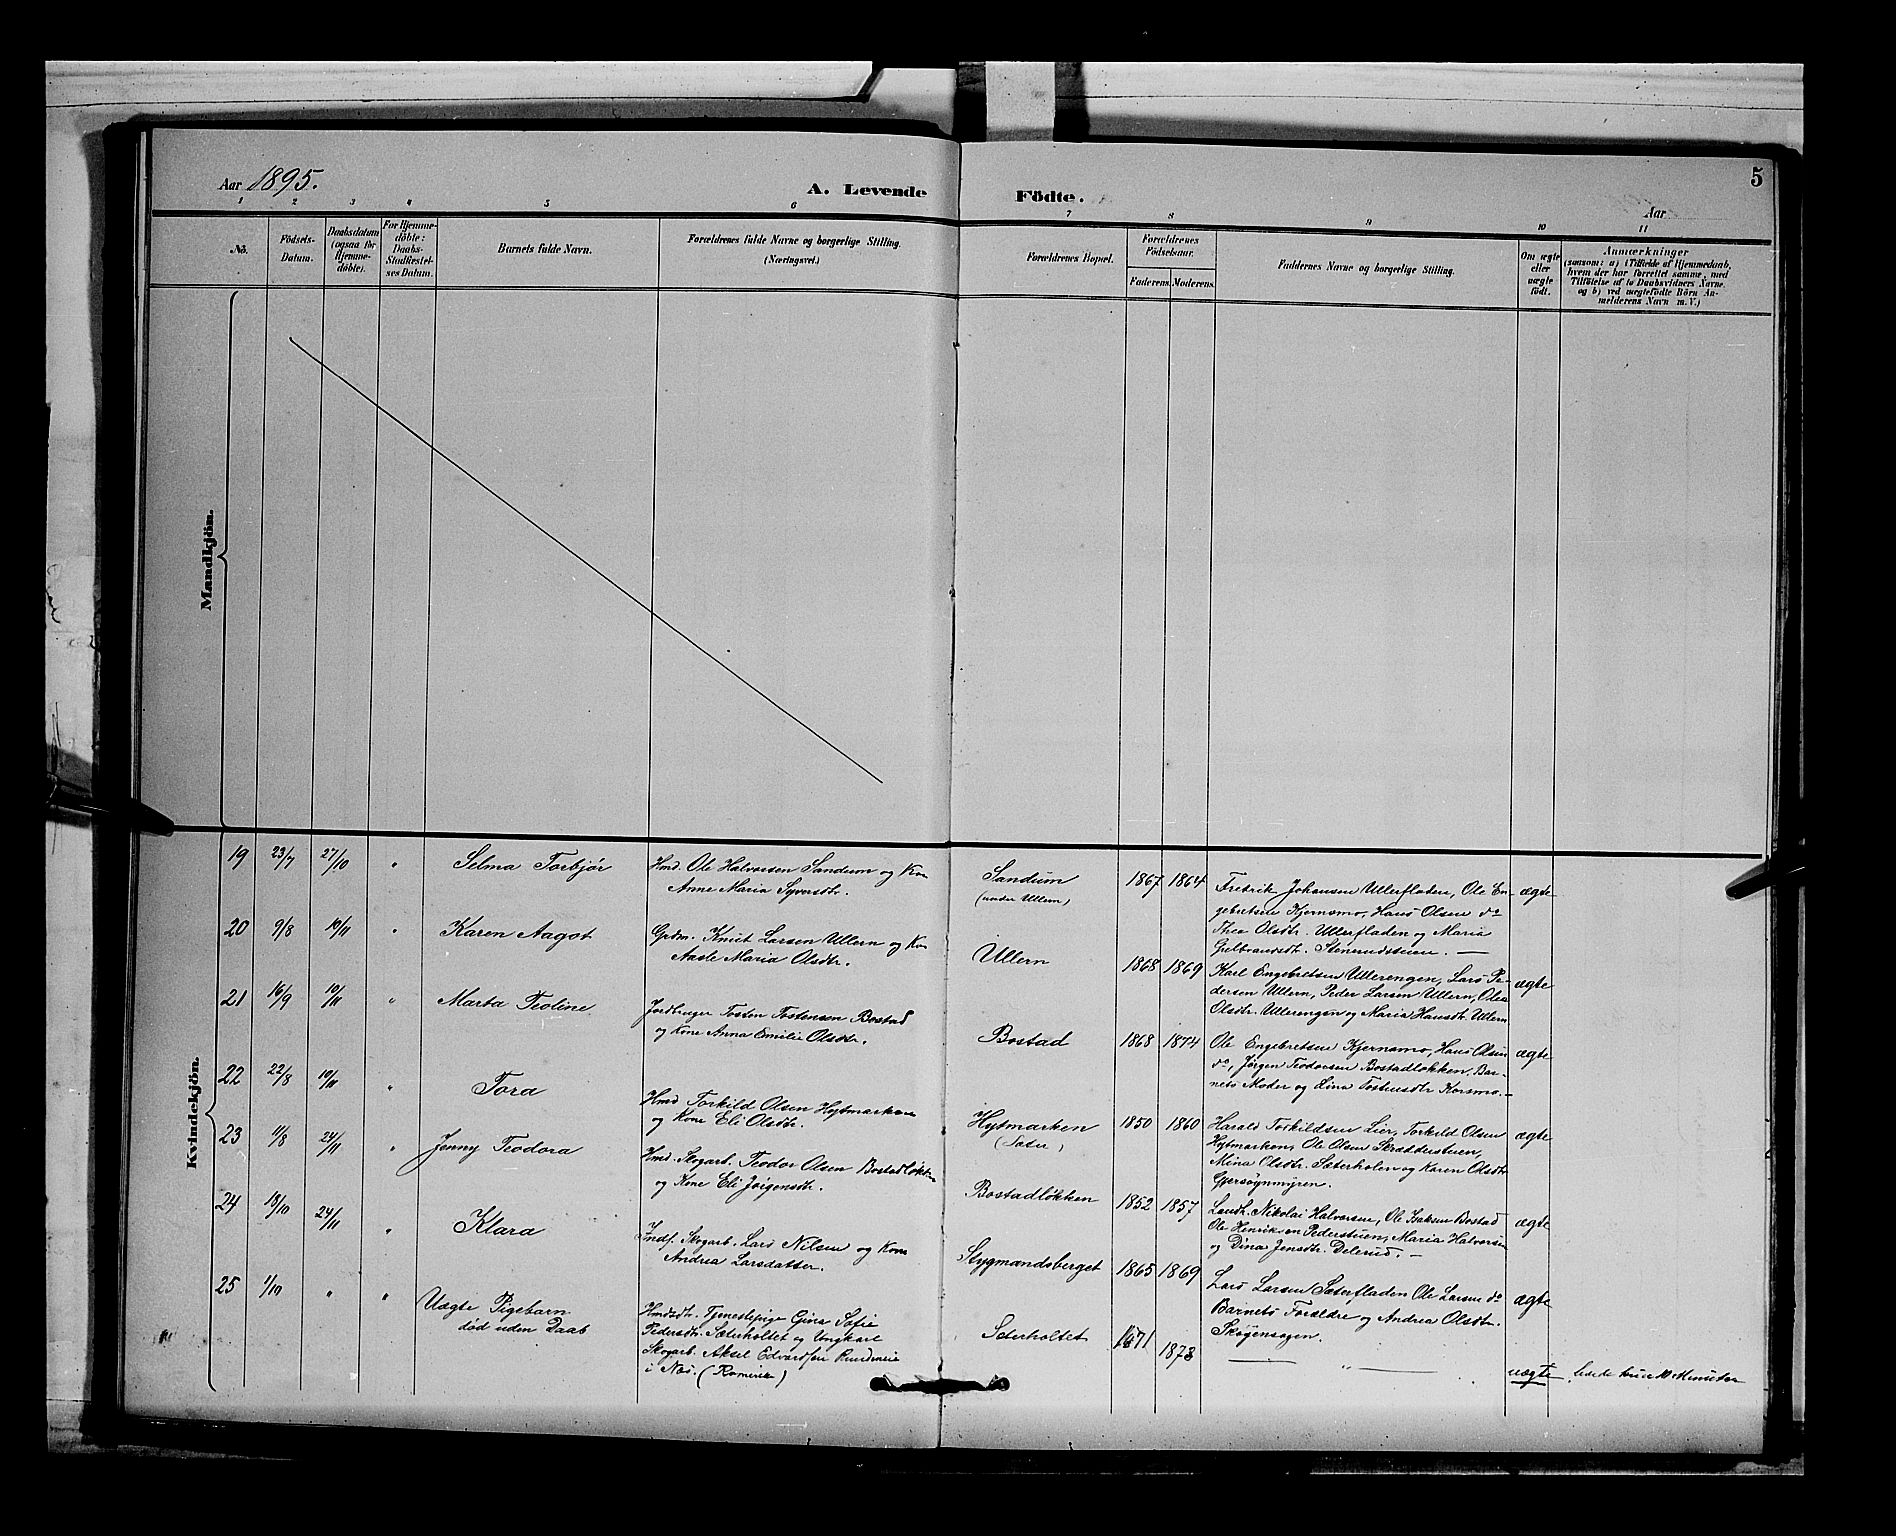 Aar 1895.
A. Levende
Födte.
5
Aar
1 2 3 4 5 6 7 8 9 10 11
No.
Födsels-
Datum.
Daabsdatum
(ogsaa for
Hjemme-
döbte).
For Hjemme-
döbte:
Daabs-
Stadfæstel-
ses Datum.
Barnets fulde Navn.
Forældrenes fulde Navne og borgerlige Stilling.
(Næringsvei.)
Forældrenes Bopæl.
Forældrenes
Födselsaar.
Faderens. Moderens.
Faddernes Navne og borgerlige Stilling.
Om ægte
eller
uægte
födt.
Anmærkninger
(saasom: a) i Tilfælde af Hjemmedaab,
hvem der har forrettet samme, med
Tilföielse af to Daabsvidners Navne.
og b) ved uægtefödte Börn An-
melderens Navn m. V.)
Mandkjön.
Kvindekjön.
19 23/7 27/10 " Selma Torbjør
Hmd. Ole Halvorsen Sandum og Kone
Anne Maria Syversdtr.
Sandum
(under Ullern)
1867 1864
Fredrik Johansen Ullerfladen, Ole En-
gebretsen Kjernsmo, Hans Olsen do
Thea Olsdtr. Ullerfladen og Maria
Gulbrandsdtr. Stenerudstuen. —
ægte
20 9/8 10/11 " Karen Aagot
Grdm. Knut Larsen Ullern og Kone
Aasle Maria Olsdtr.
Ullern
1868 1869
Karl Engebretsen Ullerengen, Lars Pe-
dersen Ullern, Peder Larsen Ullern, Olea
Olsdtr. Ullerengen og Maria Hansdtr. Ullern
ægte
21 16/9 10/11 " Marta Teoline
Jordbruger Tosten Tostensen Bostad
og Kone Anna Emilie Olsdtr.
Bostad
1868 1874
Ole Engebretsen Kjernsmo, Hans Olsen
do, Jørgen Teodorsen Bostadløkken, Bar-
nets Moder og Lina Tostensdtr Korsmo. —
ægte
22 22/8 10/11 " Tora
Hmd Torkild Olsen Hytmarken
og Kone Eli Olsdtr.
Hytmarken
(Sæter)
1850 1860
Harald Torkildsen Lier, Torkild Olsen
Hytmarken, Ole Olsen Skrædderstuen,
Mina Olsdtr. Sæterholen og Karen Olsdtr
Gjersøynmyren.
ægte
23 11/8 24/11 " Jenny Teodora
Hmd. Skogarb. Teodor Olsen Bostadløkken
og Kone Eli Jørgensdtr.
Bostadløkken
1852 1857
Landh. Nikolai Halvorsen, Ole Isaksen Bostad
Ole Henriksen Pederstuen, Maria Halvorsen
og Dina Jensdtr. Delerud. —
ægte
24 19/10 24/11 " Klara
Indf. Skogarb. Lars Nilsen og Kone
Andrea Larsdatter.
Stygmandsberget
1865 1869
Lars Larsen Sæterfladen Ole Larsen do
Barnets Forældre og Andrea Olsdtr.
Skøyensagen.
ægte
25 1/10 " " Uægte Pigebarn
død uden Daab
Hmdsdtr. Tjenestepige Gina Sofie
Pedersdtr. Sæterholtet og Ungkarl
Skogarb. Aksel Edvardsen
i Næs. (Romerike)
Sæterholtet
1871 1873
— " —
uægte levede kun 10 Minutter